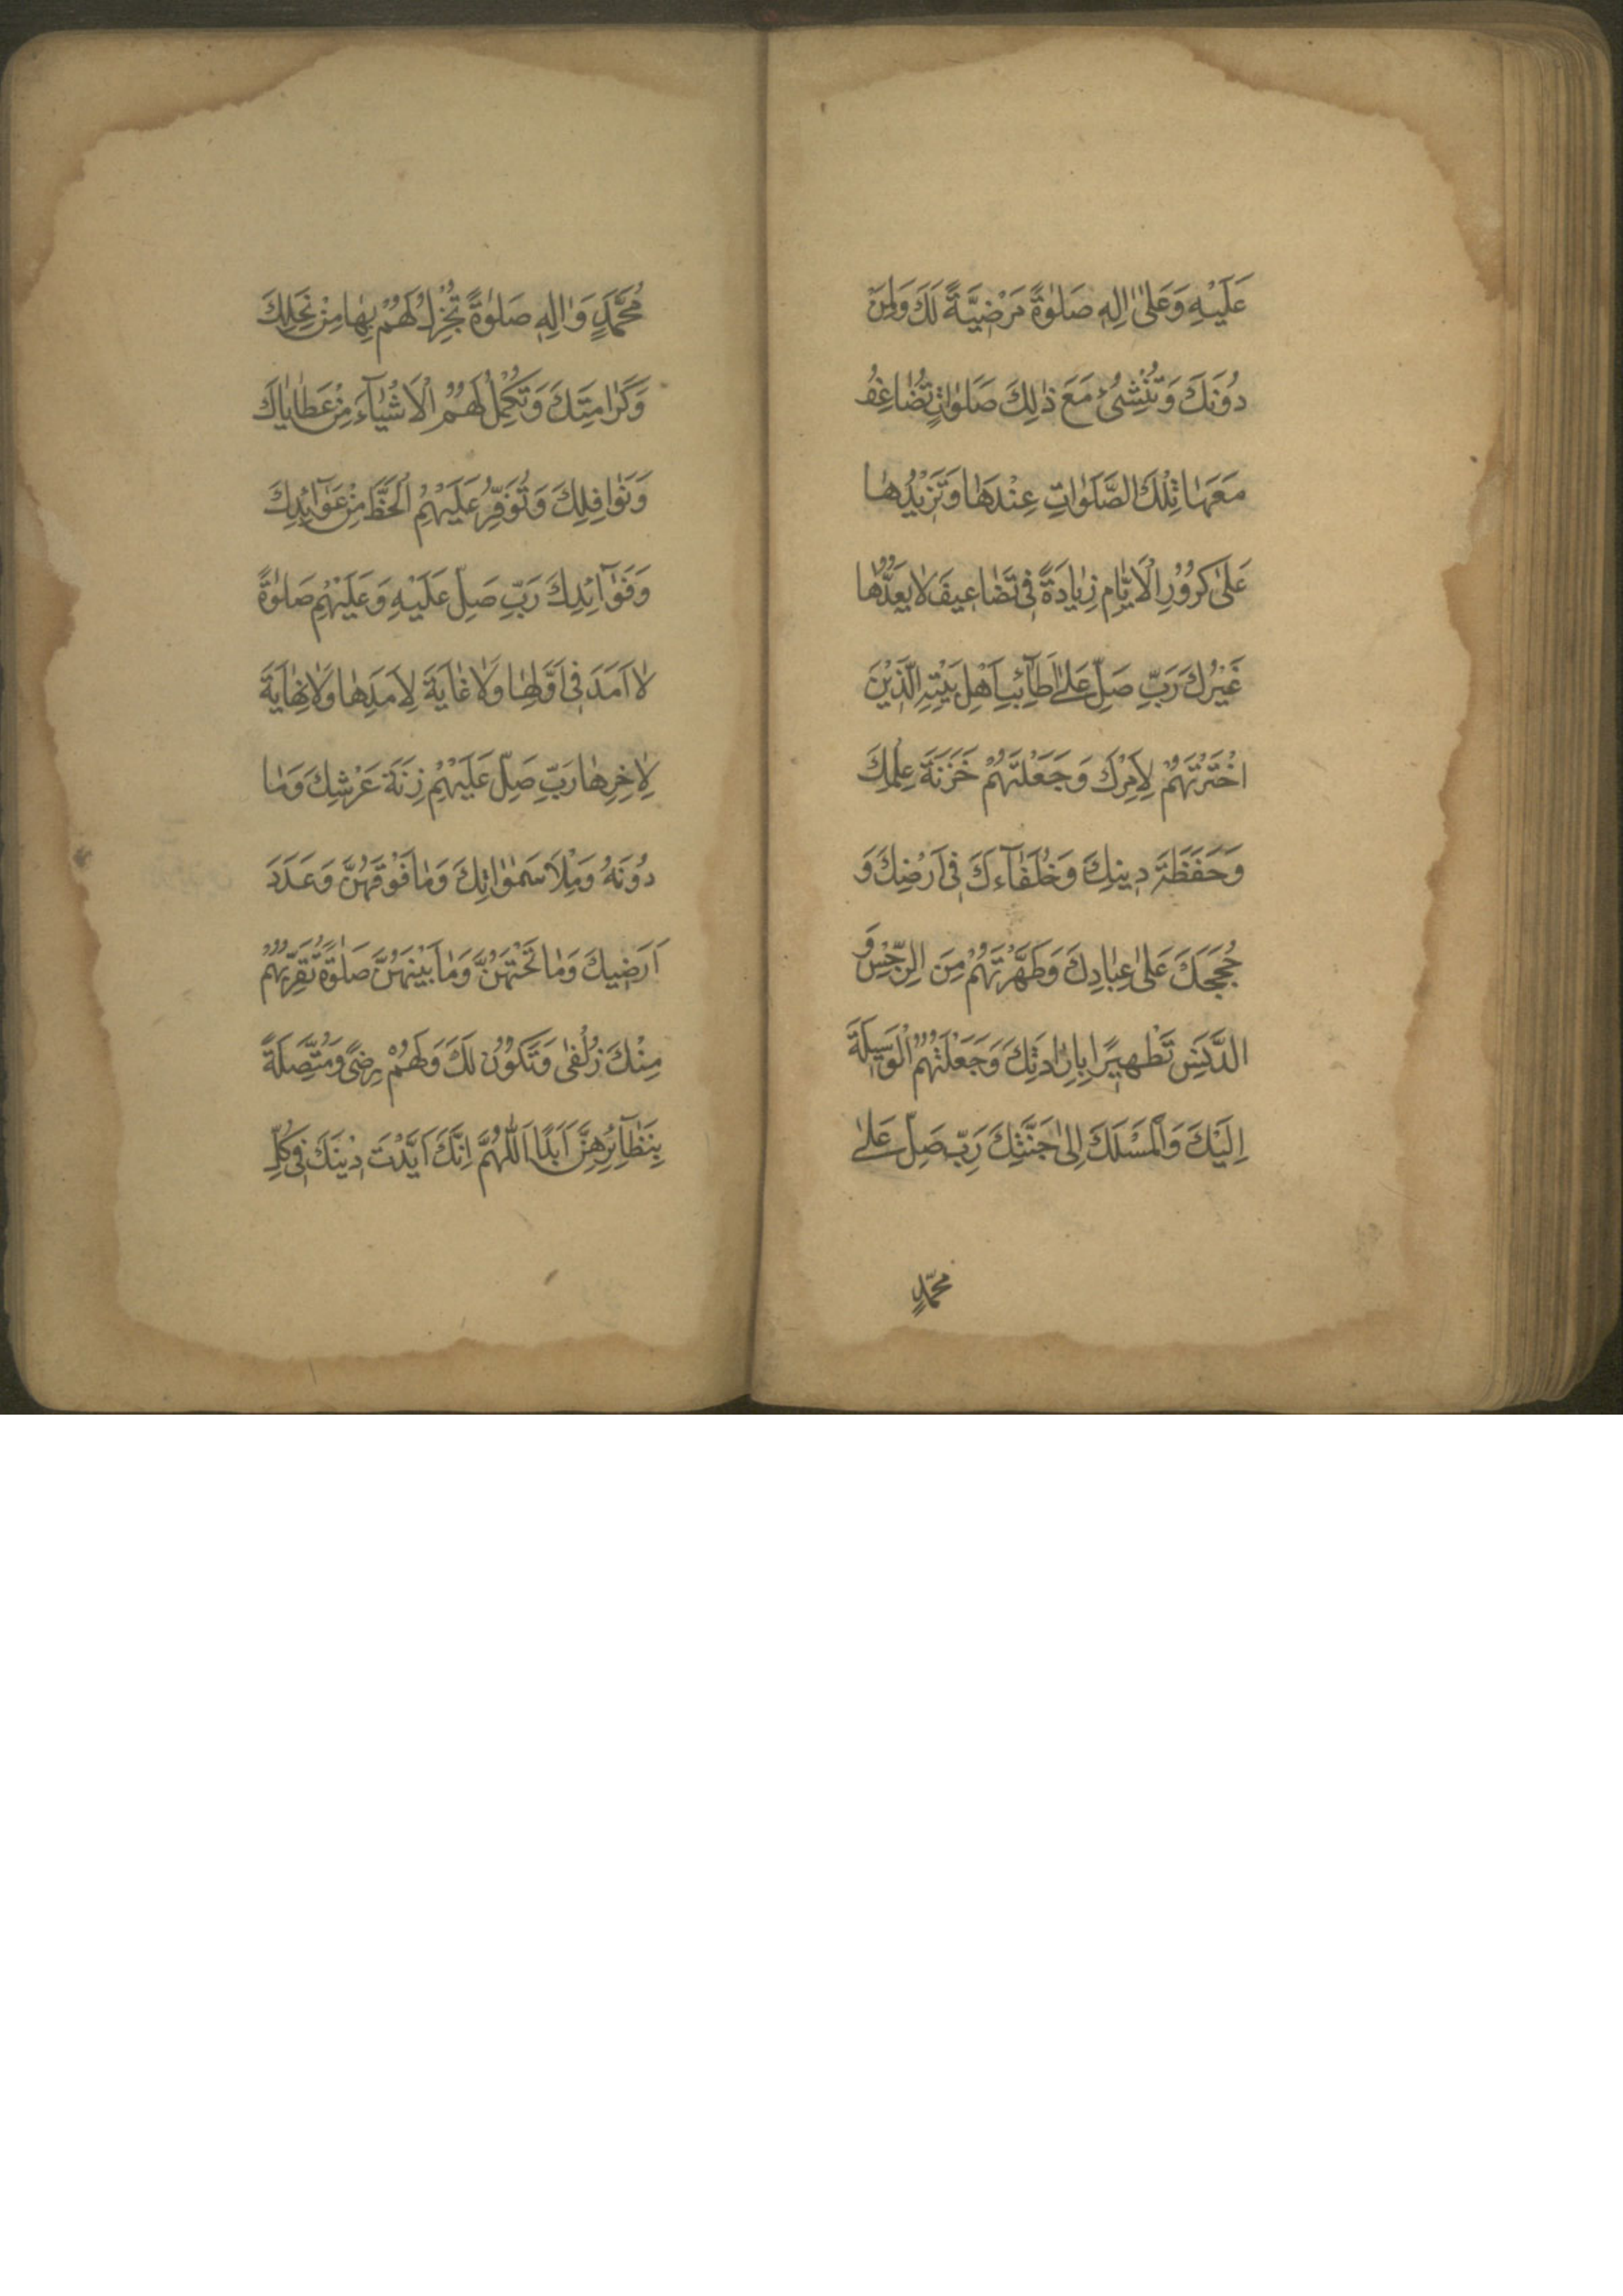 عَلَيْهِ وَعَلىٰ اٰلِهِ صَلوٰةً مَرْضِيَّةً لَكَ وَلِمَنْ
دُوْنَكَ وَتُنْشِئُ مَعَ ذٰلِكَ صَلَوٰاتٍ تُضَاعِفُ
مَعَهٰا تِلْكَ الصَّلَوٰاتِ عِنْدَهٰا وَتَزِيْدُهٰا
عَلىٰ كُرُوْرِ الْاَيّٰامِ زِيٰادَةً فِى تَضَاعِيفَ لٰا يَعُدُّهٰا
غَيْرُكَ رَبِّ صَلِّ عَلىٰ اَطَآئِبِ اَهْلِ بَيْتِهِ الَّذِيْنَ
اخْتَرْتَهُمْ لِاَمْرِكَ وَجَعَلْتَهُمْ خَزَنَةَ عِلْمِكَ
وَحَفَظَةَ دِينِكَ وَخُلَفٰآءَكَ فِى اَرْضِكَ وَ
حُجَجَكَ عَلىٰ عِبٰادِكَ وَطَهَّرْتَهُمْ مِنَ الرِّجْسِ وَ
الدَّنَسِ تَطْهِيرًا بِاِرٰادَتِكَ وَجَعَلْتَهُمُ الْوَسِيلَةَ
اِلَيْكَ وَالْمَسْلَكَ اِلىٰ جَنَّتِكَ رَبِّ صَلِّ عَلىٰ
محمّدٍ
مُحَمَّدٍ وَاٰلِهِ صَلوٰةً تُجْزِلُ لَهُمْ بِهٰا مِنْ نِحَلِكَ
وَكَرٰامَتِكَ وَتُكْمِلُ لَهُمُ الْاَشْيٰآءَ مِنْ عَطٰايٰاكَ
وَنَوٰافِلِكَ وَتُوَفِّرُ عَلَيْهِمُ الْحَظَّ مِنْ عَوٰآئِدِكَ
وَفَوٰآئِدِكَ رَبِّ صَلِّ عَلَيْهِ وَعَلَيْهِمْ صَلوٰةً
لٰا اَمَدَ فِى اَوَّلِهٰا وَلٰا غٰايَةَ لِاَمَدِهٰا وَلٰا نِهٰايَةَ
لِاٰخِرِهٰا رَبِّ صَلِّ عَلَيْهِمْ زِنَةَ عَرْشِكَ وَمٰا
دُوْنَهُ وَمِلْاَ سَمٰوٰاتِكَ وَمٰا فَوْقَهُنَّ وَعَدَدَ
اَرَضِيكَ وَمٰا تَحْتَهُنَّ وَمٰا بَيْنَهُنَّ صَلوٰةً تُقَرِّبُهُمْ
مِنْكَ زُلْفىٰ وَتَكُوْنُ لَكَ وَلَهُمْ رِضىً وَمُتَّصِلَةً
بِنَظٰآئِرِهِنَّ اَبَدًا اَللّٰهُمَّ اِنَّكَ اَيَّدْتَ دِيْنَكَ فِى كُلِّ